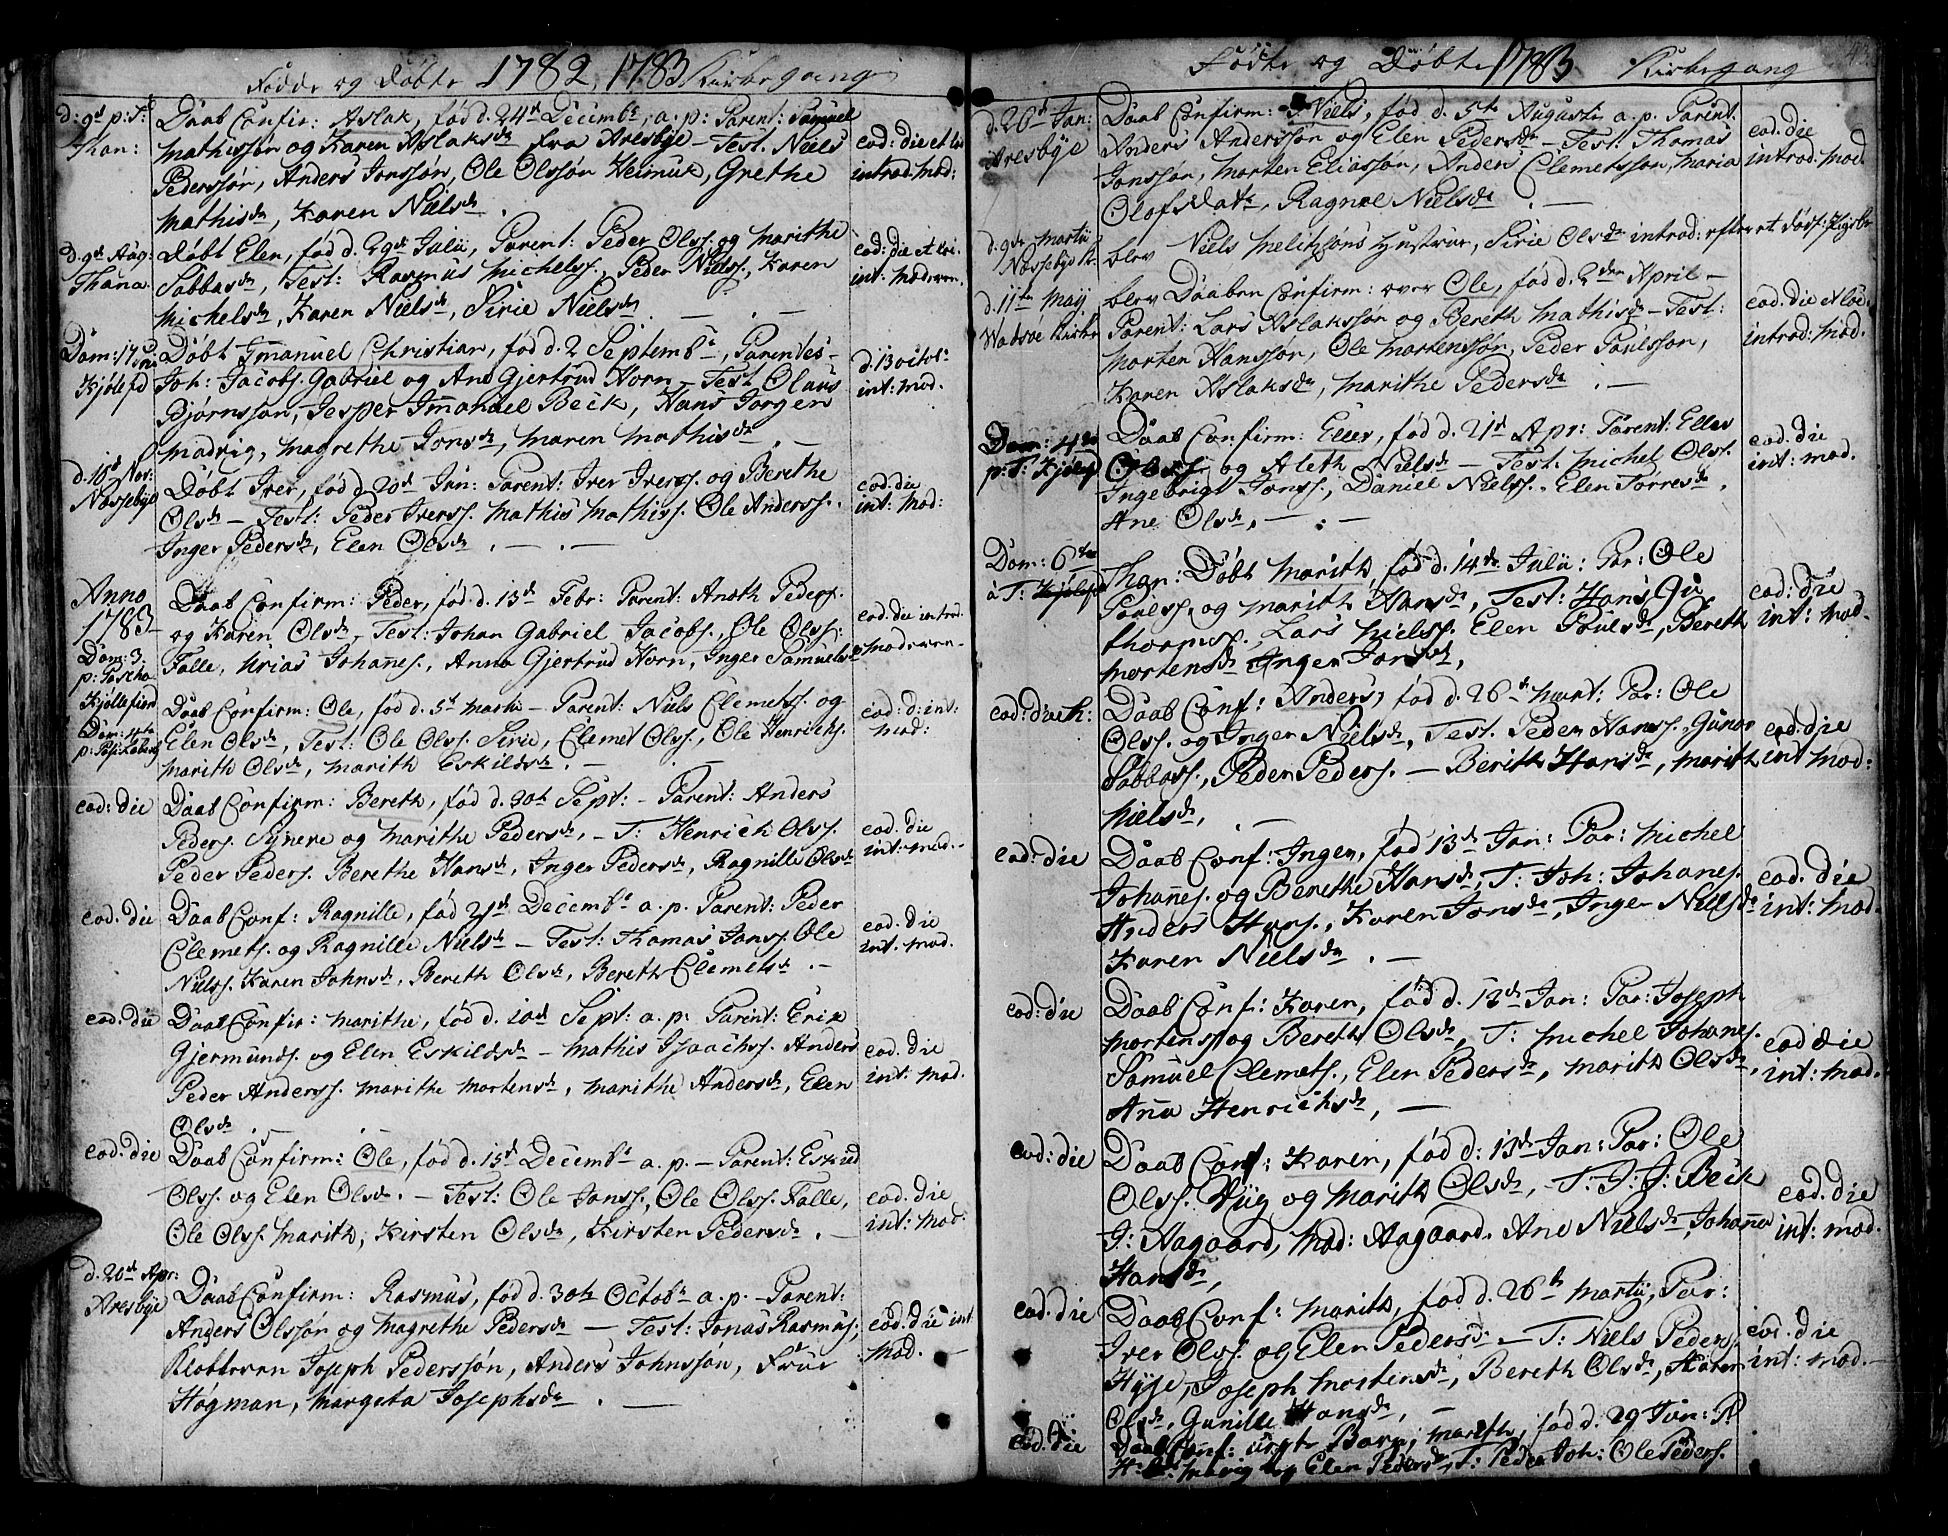 Fødde og Døbte 1782, 1783 Kirkegang
d: 9d p: T:
Than:
Daab Confir: Aslak, fød d. 24d Decembr, a. p: Parent: Samuel
Mathissøn og Karen Aslaksdr fra Aresbye - Test. Niels
Pederssøn, Anders Jonssøn, Ole Olssøn Heimuk, Grethe
Mathisdr, Karen Nielsdr.
eod: die et
introd. Mod:
d. 9d Aug:
Thana
Døbt Elen, fød d. 29d Julii, Parent: Peder Olss. og Marithe
Sabbasdr, Test: Rasmus Michelss., Peder Nielss., Karen
Michelsdr, Karen Nielsdr, Sirie Nielsdr.
eod: die et
int: Mod:
Dom: 17
Kjølefd
Døbt Immanuel Christian, fød d. 2 Septembr, Parentes-
Joh: Jacobs. Gabriel og Ane Gjertrud Horn - Test. Olaus
Bjørnssøn, Jesper Immanuel Beck, Hans Jørgen
Madvig, Magrethe Jonsdr, Maren Mathisdr.
d. 13 octbr
int: Mod.
d. 10d Nov:
Næssebye
Døbt Iver, fød d. 20d Jan: Parent: Iver Iverss. og Berethe
Olsdr - Test: Peder Iverss. Mathis Mathiss. Ole Anderss.
Inger Pedersdr, Elen Olsdr.
eod: die
int: Mod:
Anno
1783
Dom: 3.
p: Pascha
Kjøllefiord
Daab Confirm: Peder, fød d. 13d Febr: Parent: Anoth Peders.
og Karen Olsdr, Test: Johan Gabriel Jacobs., Ole Olss:
Falle, Urias Johanes., Anna Gjertrud Horn, Inger Samuelsdr
eod: die introd.
Mod:
Dom: 4ta
p:
Daab Confirm: Ole, fød d. 5d Marti - Parent: Niels Clemets. og
Elen Olsdr, Test: Ole Olss. Sirie, Clemet Olss., Ole Henrichs.
Marith Olsdr, Marith Eskildsdr.
eod: d: int:
Mod:
eod: die
Daab Confirm: Bereth, fød d. 30h Sept: - Parent: Anders
Peders. Synere og Marithe Pedersdr, - T: Henrich Olss.
Peder Peders. Berethe Hansdr, Inger Pedersdr, Ragnille Olsdr
eod. die
int: Mod.
eod: die
Daab Conf: Ragnille, fød 21d Decembr a. p. Parent: Peder
Clemets. og Ragnille Nielsdr - Test: Thomas Jonss. Ole
Nielss. Karen Johnsdr, Bereth Olsdr, Bereth Clemetsdr. -
eod: die
int. Mod.
eod: die
Daab Confir: Marithe, fød d. 10d Sept: a. p: Parent: Erik
Gjermunds. og Elen Eskildsdr - Mathis Isaachss. Anders
Peder Anderss. Marithe Mortensdr, Marithe Andersdr, Elen
Olsdr.
eod. die
int: Mod.
eod: die
Daab Confirm: Ole, fød d. 15d Decembr a. p. - Parent: Eskild
Olss. og Elen Olsdr. - Test: Ole Jonss., Ole Olss. Falle,
Ole Olss. Marith, Kirsten Olsdr, Kirsten Pedersdr. -
eod. die
int: Mod.
d. 20d Apr:
Aresbye
Daab Confirm: Rasmus, fød d. 30h Octobr a. p. - Parent:
Anders Olssøn og Magrethe Pedersdr - Test: Jonas Rasmus,
Klotteren Joseph Pederssøn, Anders Johnssøn, Frue
Høgman, Margeta Josephsdr.
eod. die int
Mod.
Fødte og Døbte 1783 Kirkegang
d. 20d Jan:
Aresbye
Daab Confirm: Niels, fød d. 5te Augusti a. p. Parent.
Anders Anderssøn og Elen Pedersdr - Test: Thomas
Jonssøn, Morten Eliassøn, Anders Clemetssøn, Maria
Olofsdatr, Ragnel Nielsdr.
eod: die
introd. Mod.
d. 9de Martii
Næssebye K.
blev Niels Hustrue, Sirie Olsdr introd: efter et
d. 11te Maij
Wadsøe Kirke
blev Daaben Confirm: over Ole, fød d. 2den April -
Parent: Lars Aslakssøn og Bereth Mathisdr - Test:
Morten Hanssøn, Ole Mortenssøn, Peder Poulssøn,
Karen Aslaksdr, Marithe Pedersdr. -
eod: die
introd: Mod.
Dom: 4de
p: T: Kjølefd
Daab Confirm: Eller, fød d. 21d Apr: Parent: Eller
Olss. og Aleth Nielsdr - Test: Michel Olss.
Ingebrigt Jonss., Daniel Nielss. Elen Torresdr.
Ane Olsdr.
eod. die
int: Mod.
Dom: 6te
a T: Kjølefd
Than: Døbt Marith, fød d. 14de Julii: Par: Ole
Poelss. og Marith Hansdr, Test: Hans Gu
thorms., Lars Nielss. Elen Poulsdr, Bereth
Mortensdr Inger Jonsdr,
eod: die
int: Mod.
eod: die
Daab Conf: Anders, fød d. 26de Mart: Par: Ole
Olss. og Inger Nielsdr, Test. Peder Hanss. Gunor
Sabbass., Peder Peders. - Berith Hansdr, Marith
Nielsdr,
eod. die
int Mod:
eod: die
Daab Conf: Inger, fød 13de Jan: Par: Michel
Johanes. og Berethe Hansdr, T: Joh: Johanes.
Anders Hans., Karen Jonsdr, Inger Nielsdr
Karen Nielsdr. -
eod. die
int: Mod.
eod: die
Daab Conf: Karen, fød d. 13de Jan: Par: Joseph
Mortens. og Bereth Olsdr, T: Michel Johanes.
Samuel Clemets., Elen Pedersdr, Marith Olsdr,
Ana Henrichsdr, -
eod die
int: Mod.
eod: die
Daab Conf: Karen, fød d: 13de Jan: Par: Ole
Olss. og Marith Olsdr, - T: J: J: Beck
J: Aagaard, Mad: Aagaard. Ane Nielsdr, Johana
Hansdr,
eod. die
int: Mod.
eod. die
Daab Conf: Marith, fød d. 26de Martii, Par:
Iver Olss. og Elen Pedersdr. - T: Niels Peders.
Joseph Mortensdr, Bereth Olsdr, Karen
Olsdr, Gunille Hansdr, -
eod. die
int: Mod. -
eod. die
Daab Conf: Barn, Marith, fød d. 29 Jan: P
og Elen Pedersdr, T: Peder Joh: Ole Peders.